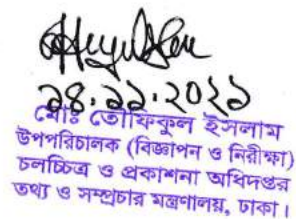 ২৪.১১.২০২১
মোঃ তৌফিকুল ইসলাম
উপপরিচালক (বিজ্ঞাপন ও নিরীক্ষা)
চলচ্চিত্র ও প্রকাশনা অধিদপ্তর
তথ্য ও সম্প্রচার মন্ত্রণালয়, ঢাকা।